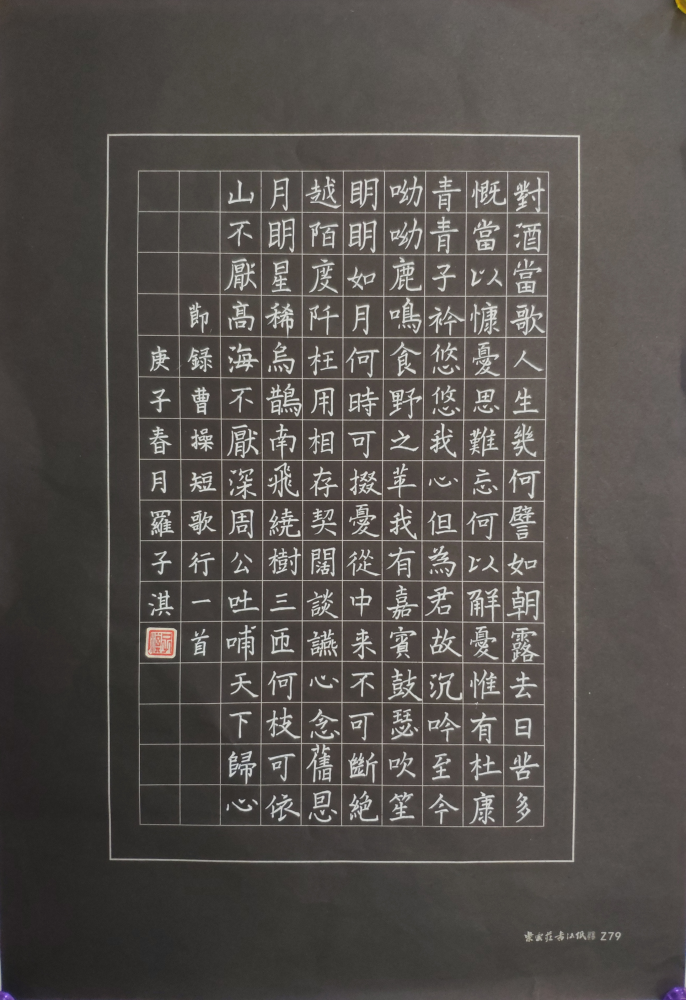 對酒當歌人生幾何譬如朝露去日苦多
慨當以慷憂思難忘何以解憂惟有杜康
青青子衿悠悠我心但為君故沉吟至今
呦呦鹿鳴食野之苹我有嘉賓鼓瑟吹笙
明明如月何時可掇憂從中来不可斷絕
越陌度阡枉用相存契闊談讌心念舊恩
月明星稀烏鵲南飛繞樹三匝何枝可依
山不厭高海不厭深周公吐哺天下歸心
節録曹操短歌行一首
庚子春月羅子淇
Z79